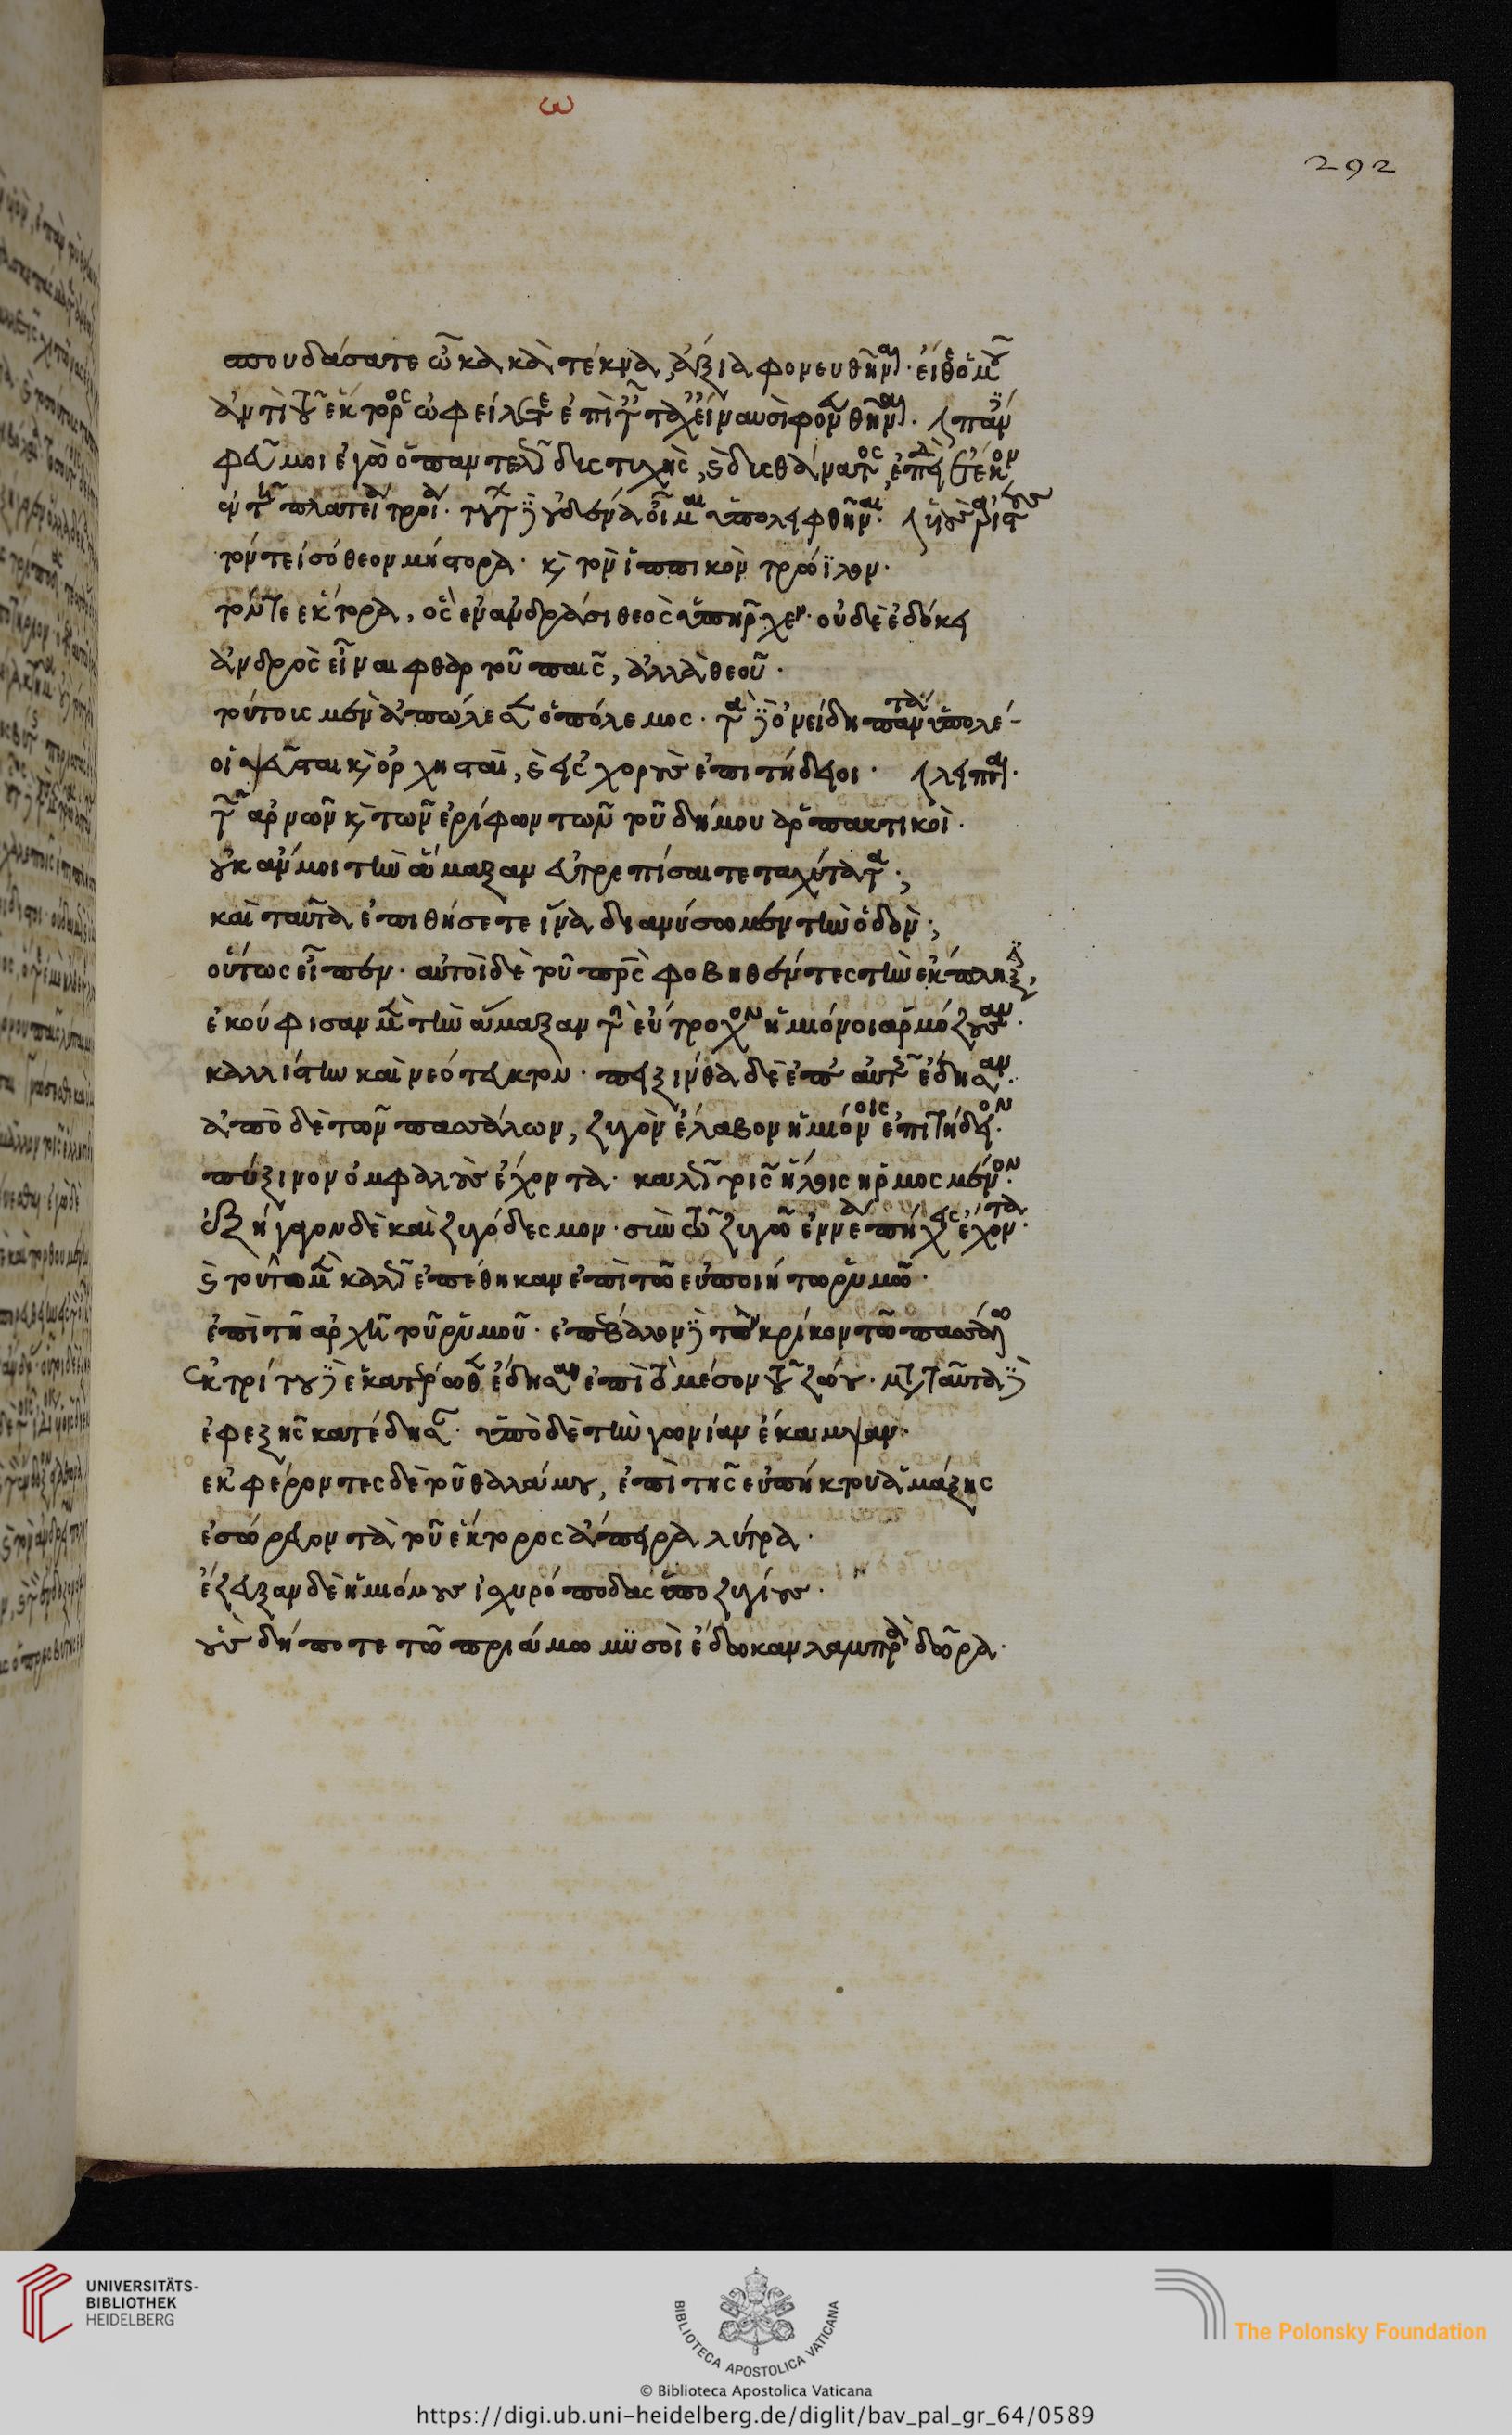 ω
292
σπουδάσατε ὦ κακὰ τέκνα, ἄξια φονευθῆναι. εἴθε ὁμοῦ
ἀντὶ τοῦ ἕκτορος ὠφείλετε ἐπὶ τῶν ταχειῶν ναυσὶ φονευθῆναι.
φεῦ μοι ἐγὼ ὁ παντελῶς δυστυχὴς, καὶ δυσθάνατος, ἐπεὶ ἔτεκον
ἐν τῇ πλατείᾳ τροίᾳ. τούτων δὲ οὐδένα οἶμαι ὑπολειφθῆναι.
τόν τε ἰσόθεον μήστορα. καὶ τὸν ἱππικὸν τρώϊλον.
τόν τε ἕκτορα, ὃς ἐν ἀνδράσι θεὸς ὑπῆρχεν. οὐδὲ ἐδόκει
ἀνδρὸς εἶναι φθαρτοῦ παῖς, ἀλλὰ θεοῦ.
τούτους μὲν ἀπώλεσεν ὁ πόλεμος. τὰ δὲ ὀνείδη πάντα ὑπολέ-
οἱ ψεῦσται καὶ ὀρχησταὶ, καὶ εἰς χοροὺς ἐπιτήδειοι. λειπται.
τῶν ἀρνῶν καὶ τῶν ἐρίφων τῶν τοῦ δήμου ἁρπακτικοὶ.
οὐκ ἄν μοι τὴν ἅμαξαν εὐτρεπίσαιτε ταχύτατα;
καὶ ταῦτα ἐπιθήσετε ἵνα διανύσωμεν τὴν ὁδὸν;
οὕτως εἶπεν. αὐτοὶ δὲ τοῦ πατρὸς φοβηθέντες τὴν ἔκπληξιν,
ἐκούφισαν μὲν τὴν ἅμαξαν τὴν εὔτροχον ἡμιόνοι ἁρμόζουσαν.
καλλίστην καὶ νεότευκτον. πειξινθα δὲ ἐπ' αὐτῆς ἔδησαν.
ἀπὸ δὲ τῶν πασσάλων, ζυγὸν ἔλαβον ἡμιόνοις ἐπιτήδειον.
πύξινον ὀμφαλοὺς ἔχοντα. καλῶς τοῖς ἥλοις ἡρμοσμένον.
ἐξήγαγον δὲ καὶ ζυγόδεσμον. σὺν τῷ ζυγῷ ἐννέα πήχεις ἔχοντα.
καὶ τοῦτο μὲν καλῶς ἐπέθηκαν ἐπὶ τῷ εὐποιήτῳ ῥυμῷ.
ἐπὶ τῇ ἀρχῇ τοῦ ῥυμοῦ. ἐπέβαλον δὲ τὸν κρίκον τῷ πασσάλῳ
ἐκ τρίτου δὲ ἑκατέρωθεν ἔδησαν ἐπὶ τὸ μέσον τοῦ ζυγοῦ. μετὰ ταῦτα δὲ
ἐφεξῆς κατέδησαν. ὑπὸ δὲ τὴν γωνίαν ἔκαμψαν.
ἐκφέροντες δὲ τοῦ θαλάμου, ἐπὶ τῆς εὐπήκτου ἁμάξης
ἐσώρευον τὰ τοῦ ἕκτορος ἄπειρα λύτρα.
ἔζευξαν δὲ ἡμιόνους ἰσχυρόποδας ὑποζυγίους.
οὓς δή ποτε τῷ πριάμῳ μυσοὶ ἔδωκαν λαμπρὰ δῶρα.
UNIVERSITÄTS-
BIBLIOTHEK
HEIDELBERG
BIBLIOTECA APOSTOLICA VATICANA
The Polonsky Foundation
© Biblioteca Apostolica Vaticana
https://digi.ub.uni-heidelberg.de/diglit/bav_pal_gr_64/0589